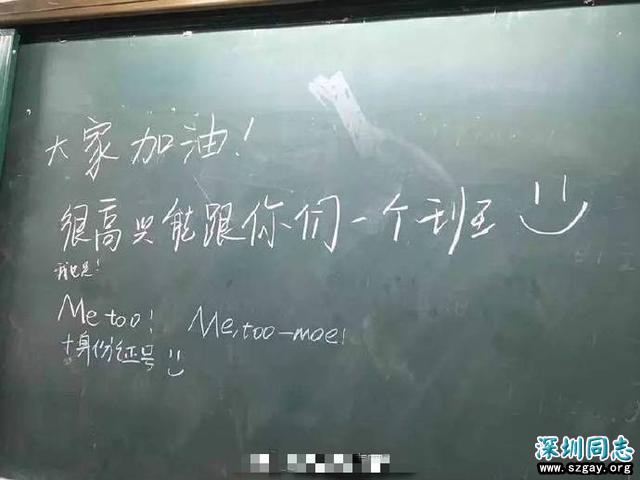 大家加油！
很高兴能跟你们一个班 :)
我也是！
Me too! Me, too-moe!
+身份证号 :)
深圳同志
www.szgay.org